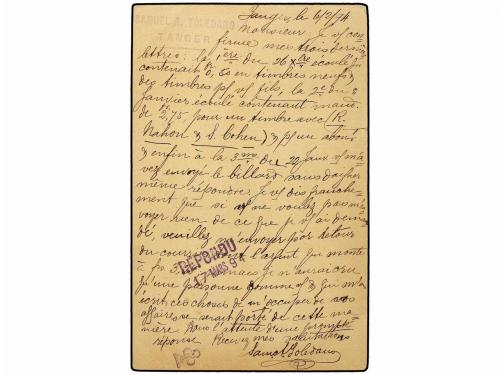 SAMUEL A. TOLEDANO
TANGER
Tanger le 6/2/94
Monsieur, Je vs con
firme mes trois dernières
lettres: la 1ère du 26 Xbre écoulé
contenait en timbres neufs
des timbres pr vs fils, la 2e du 8
Janvier écoulé contenant
de 2,75, pour un timbre avec (R.
Nahon & S. Cohen) & pr un
& enfin à la 3me du 22 Janv vs m'a
vez envoyé le billard sans daigner
même répondre. Je vs dis franche
ment que si vs ne voulez pas m'en
voyer rien de ce que je vs ai deman
dé, veuillez m'envoyer par retour
du courrier l'argent qui monte
à fr. mais je n'aurai cru
qu'une personne comme vs & qui m'a
écrit des choses de m'occuper de vos
affaires se serait porté de cette ma
nière. Dans l'attente d'une prompte
réponse Recevez mes salutations
Samuel Toledano
REPONDU
17 MARS 94